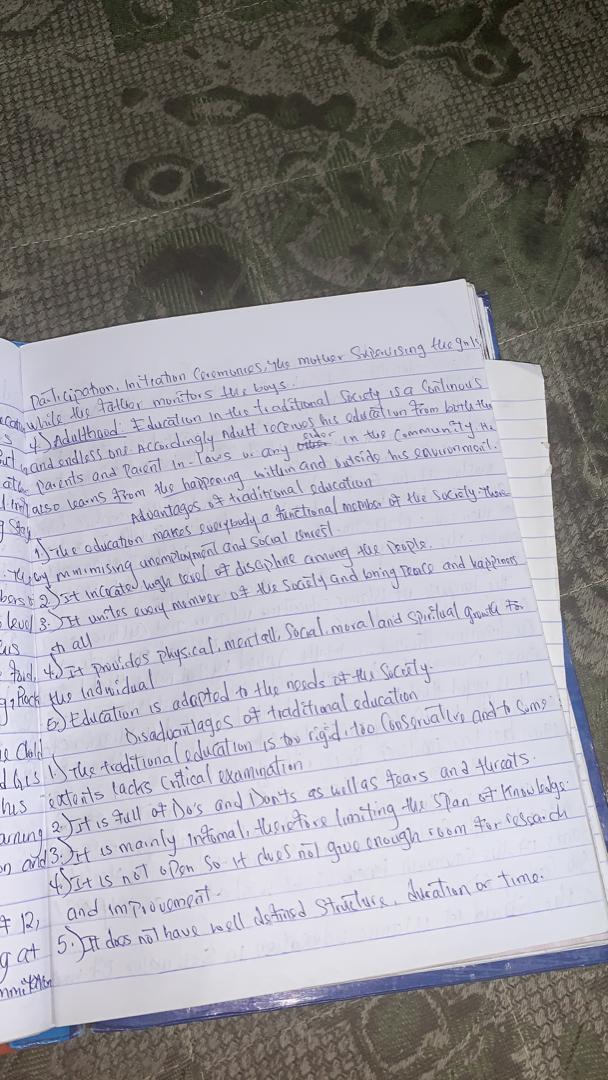 Participation, Initiation Ceremonies, the mother Supervising the girls
while the father monitors the boys.
4) Adulthood: Education in the traditional Society is a Continous
and endless one. Accordingly Adult receives his education from both the
Parents and Parent in-laws or any elder in the Community. He
also learns from the happening within and outside his environment.
Advantages of traditional education
1) The education makes everybody a functional member of the Society there
by minimising unemployment and Social unrest.
2) It high level of discipline among the People.
3.) It unites every member of the Society and bring Peace and happiness
to all
4.) It provides Physical, mentall, Social, moral and Spiritual growth to
the individual
5) Education is adapted to the needs of the Society.
Disadvantages of traditional education
1.) The traditional education is too rigid, too Conservative and to some
extents lacks Critical examination
2.) It is full of Do's and Don'ts as well as fears and threats.
3.) It is mainly informal, therefore limiting the Span of Knowledge.
4.) It is not open so it does not give enough room for research
and improvement.
5.) It does not have well defined Structure, duration or time.
level
Child
his
and
12,
at